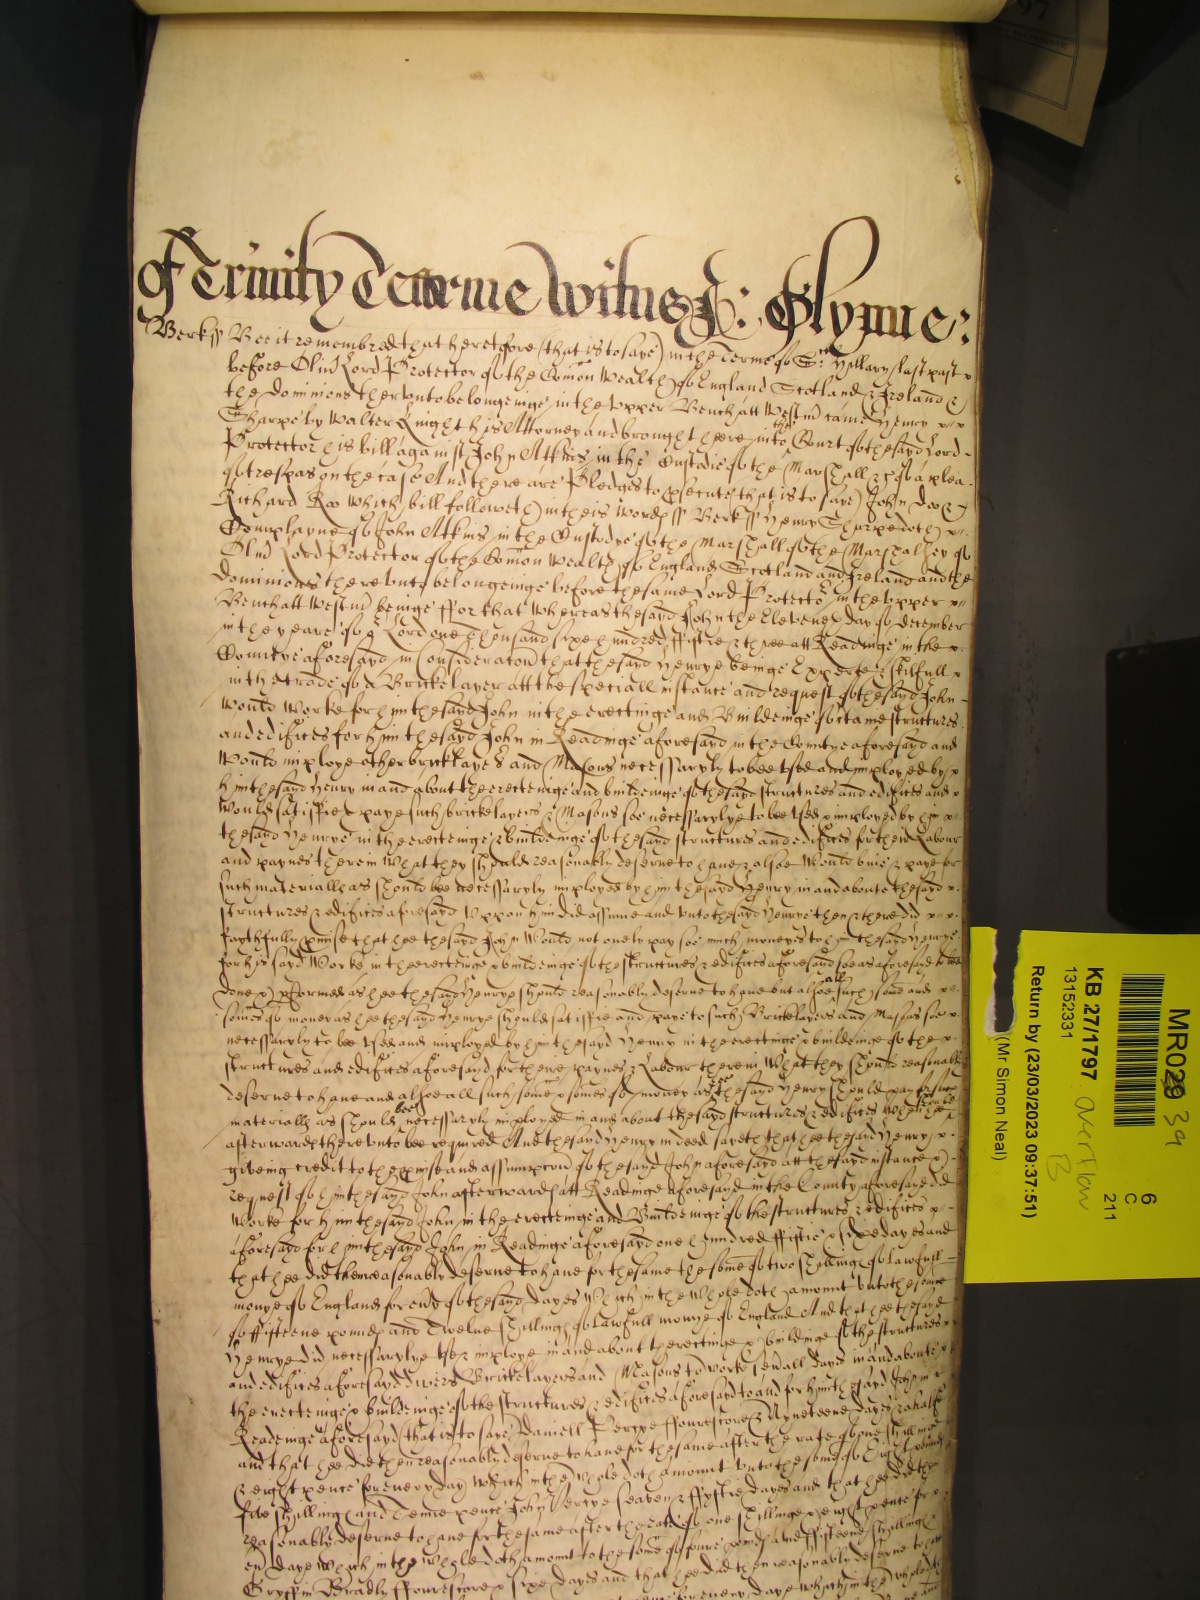 of Trinity Terme Witnes J: Glynne:
Berks ss Bee it remembred that heretofore (that is to saye) in the Terme of St Hillary last past
before Olivr Lord Protector of the Comon Wealth of England Scotland & Ireland &
the Dominions thereunto belongeinge in the Upper Bench att Westm came Henry
Tharpe by Walter Knight his Attorney and brought heere into the Court of the sayd Lord
Protector his bill against John Atkins in the Custodie of the Marshall &c of a plea
of trespas on the case And there are Pledges to psecute that is to saye John Doo &
Richard Roo Which bill followeth in theis Words ss Berks ss Henry Tharpe doth
Complayne of John Atkins in the Custodye of the Marshall of the Marshalsey of
Olivr Lord Protector of the Comon Wealth of England Scotland and Ireland and the
Dominions thereunto belongeinge before the same Lord Protector in the Upper
Bench att Westm beinge ffor that Whereas the sayd John the Eleventh day of December
in the yeare of or Lord one thousand sixe hundred ffiftie & three att Readinge in the
Countye aforesayd in Consideracon that the sayd Henrye beinge Experte & skilfull
in the trade of a Bricklayer att the speciall instance and request of the sayd John
Would Worke for him the sayd John in the erectinge and Buildeinge of certaine structures
and edifices for him the sayd John in Readinge aforesayd in the Countye aforesayd and
Would imploye other bricklayers and Masons necessaryly to bee used and imployed by
him the sayd Henry in and about the erecteinge and buildeinge of the sayd structures and edifices and
Would satisfie & paye such bricklayers & Masons soe necessarylye to be used & imployed by him
the sayd Henrye in the erecteinge & buildeinge of the sayd structures and edifices for their Labour
and paynes therein What they should reasonably deserve to have & alsoe Would buie & paye for
such materialls as should bee necessaryly imployed by him the sayd Henry in and aboute the sayd
structures & edifices aforesayd Uppon him did assume and unto the sayd Henrye then & there did
faythfully pmise that hee the sayd John Would not onely pay soe much moneyes to him the sayd Henrye
for his sayd Worke in the erecteinge & buildeinge of the structures & edifices aforesayd soe as aforesayd to bee
done & pformed as hee the sayd Henrye should reasonably deserve to have but alsoe all such some and
somes of money as hee the sayd Henrye should satisfie and paye to such Bricklayers and Masons soe
necessaryly to be used and imployed by him the sayd Henry in the erectinge & buildeinge of the
structures and edifices aforesayd for there paynes & Labour therein What they should reasonablie
deserve to have and alsoe all such some & somes of money as hee the sayd Henry should pay for such
materialls as should bee necessaryly imployed in and about the sayd structures & edifices When hee should
afterwards thereunto bee required And the sayd Henry in deed sayeth that hee the sayd Henry
giveing credit to the pmise and assumpcon of the sayd John aforesayd att the sayd instance &
request of him the sayd John afterwards att Readinge aforesayd in the County aforesayd did
Worke for him the sayd John in the erecteinge and Buildeinge of the structures & edifices
aforesayd for him the sayd John in Readinge aforesayd one hundred ffiftie & sixe dayes and
that hee did then reasonably deserve to have for the same the some of two shillings of Lawfull
monye of England for evy of the sayd dayes Which in the Whole doth amount unto the some
of ffifteene pounds and Twelve shillings of Lawfull monye of England And that hee the sayd
Henrye did necessarylye use & imploye in and about the erectinge & buildeinge of the structures
and edifices aforesayd divers Bricklayers and Masons to Worke sevall dayes in and aboute
the erecteinge & buildeinge of the structures & edifices aforesayd to and for him the sayd John in
Readinge aforesayd (that is to saye) Daniell Percye ffourescore & Nyneteene dayes & a halfe
and that hee did then reasonably deserve to have for the same after the rate of one shillinge
& eight pence for every day Which in the Whole doth amount unto the some of Eight pounds
five shillings and Tenne pence John Percye seaven & ffyftie dayes and that hee did then
reasonably deserve to have for the same after the rate of one shillinge & eight pence for
evy daye Which in the Whole doth amount to the some of foure pounds and ffifteene shillings
Gryffin Bradly ffourescore & sixe dayes and that hee did then reasonably deserve to have
for every daye which in the whole
MR029 39
6
C
211
KB 27/1797 overflow
B
13152331
Return by (23/03/2023 09:37:51)
(Mr Simon Neal)